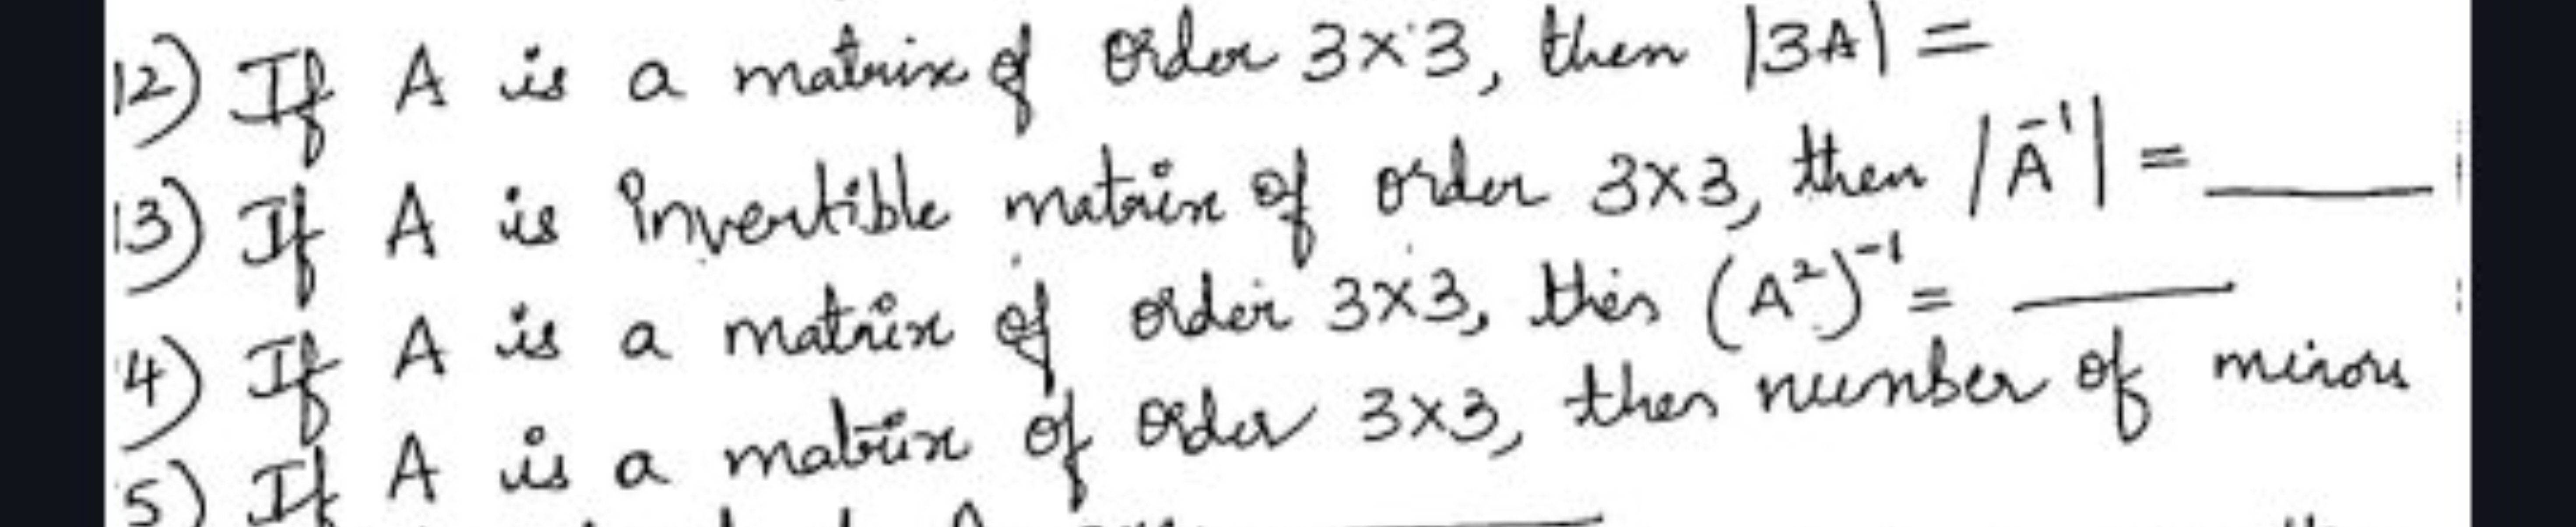 12) If A is a matrix of order 3×3, then |3A| =
13) If A is Invertible matrix of order 3×3, then |A⁻¹| = ____
4) If A is a matrix of order 3×3, then (A²)⁻¹ = ____
5) If A is a matrix of order 3×3, then number of minors